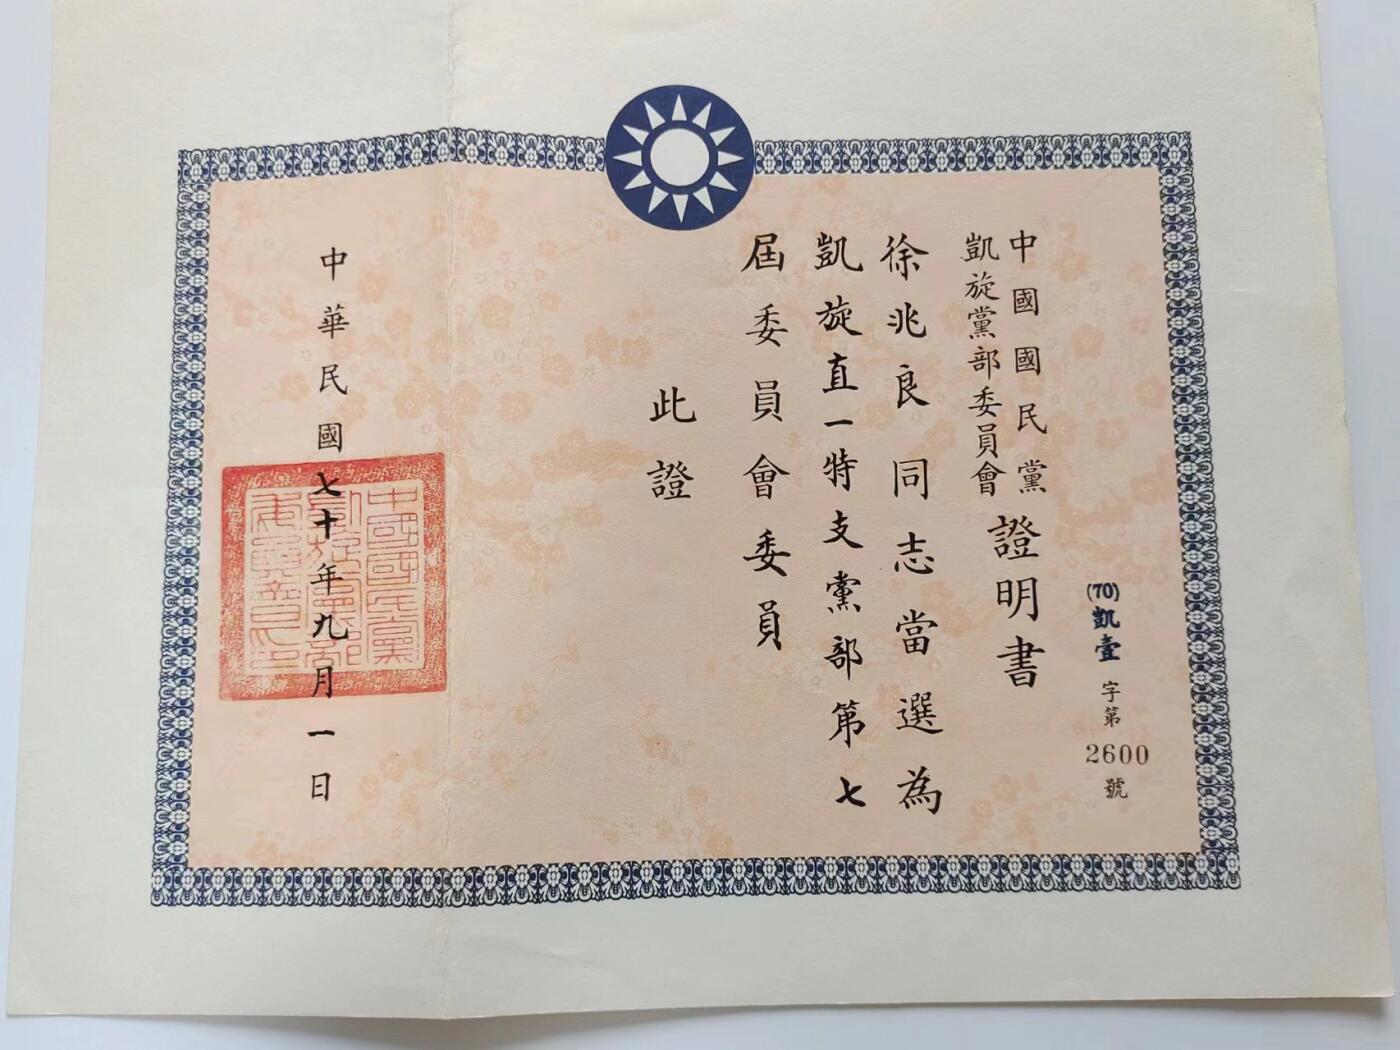 (70)凱壹字第2600號
中國國民黨
凱旋黨部委員會
證明書
徐兆良同志當選為
凱旋直一特支黨部第七
屆委員會委員
此證
中華民國七十年九月一日
中國國民黨
凱旋黨部
委員會印